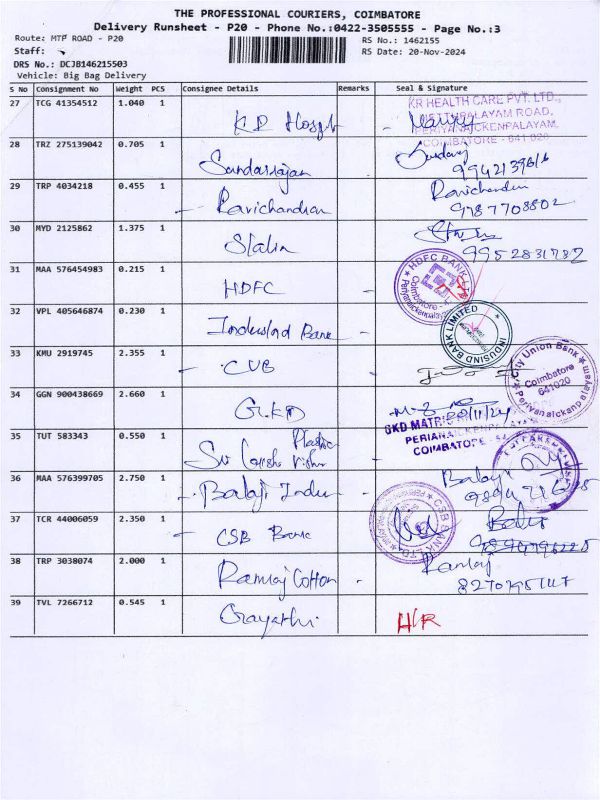 THE PROFESSIONAL COURIERS, COIMBATORE
Delivery Runsheet - P20 - Phone No.:0422-3505555 - Page No.:3
Route: MTP ROAD - P20
RS No.: 1462155
Staff:
RS Date: 20-Nov-2024
DRS No.: DCJB146215503
Vehicle: Big Bag Delivery
S No Consignment No Weight PCS Consignee Details Remarks Seal & Signature
27 TCG 41354512 1.040 1
KR HEALTH CARE PVT. LTD.,
PERIYANAICKENPALAYAM,
COIMBATORE - 641 020
28 TRZ 275139042 0.705 1 Sundarrajan
29 TRP 4034218 0.455 1 Ravichandran Ravichandran
9787708802
30 MYD 2125862 1.375 1 Stalin
9952831782
31 MAA 576454983 0.215 1 HDFC
HDFC BANK LTD
Coimbatore
32 VPL 405646874 0.230 1 Indusind Bank
INDUSIND BANK LIMITED
33 KMU 2919745 2.355 1 CUB
City Union Bank
Coimbatore
641020
34 GGN 900438669 2.660 1 GKD
20/11/24
GKD MATRIC
COIMBATORE
35 TUT 583343 0.550 1 Plastic
Sri
36 MAA 576399705 2.750 1 Balaji Balaji
37 TCR 44006059 2.350 1 CSB Bank
CSB BANK LTD
38 TRP 3038074 2.000 1 Ramraj Cotton Ramraj
39 TVL 7266712 0.545 1 Gayathri H/R